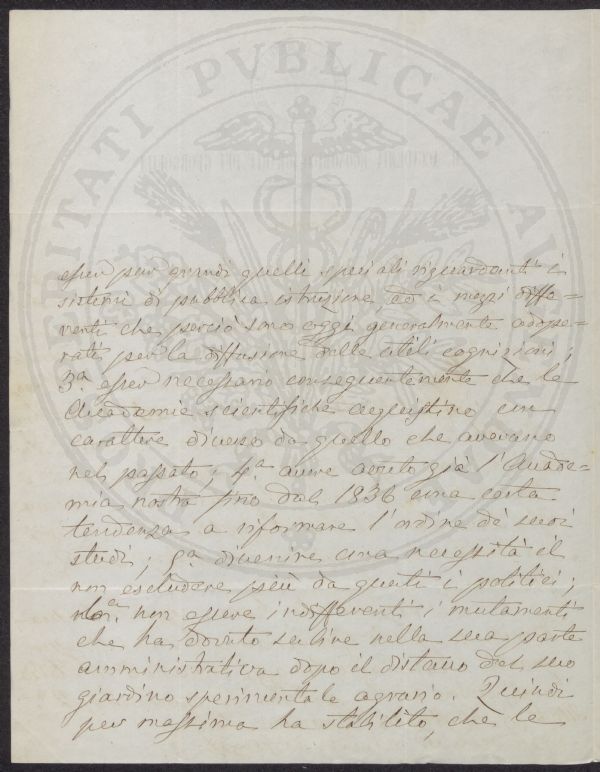 PROSPERITATI PVBLICAE AVGENDAE
esser pur grandi quelli speciali riguardanti i
sistemi di pubblica istruzione, ed i mezzi diffe=
renti che perciò sono oggi generalmente adope=
rati per la diffusione delle utili cognizioni;
3.a esser necessario conseguentemente che le
Accademie scientifiche acquistino un
carattere diverso da quello che avevano
nel passato; 4.a avere avuto già l'Accade=
mia nostra fino dal 1836 una certa
tendenza a riformare l'ordine de' suoi
studi; 5.a divenire una necessità il
non escludere più da questi i politici;
6.a non essere indifferenti i mutamenti
che ha dovuto subire nella sua parte
amministrativa dopo il distacco del suo
giardino sperimentale agrario. Quindi
per massima ha stabilito, che le